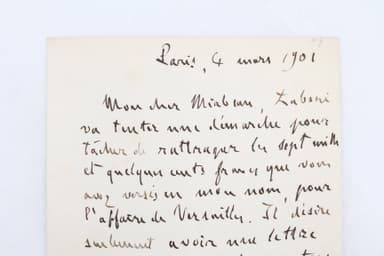 Paris, 4 mars 1901
Mon cher Mirbeau, Labori
va tenter une démarche pour
tâcher de rattraper les sept mille
et quelques cents francs que vous
avez versés en mon nom, pour
l'affaire de Versailles. Il désire
seulement avoir une lettre